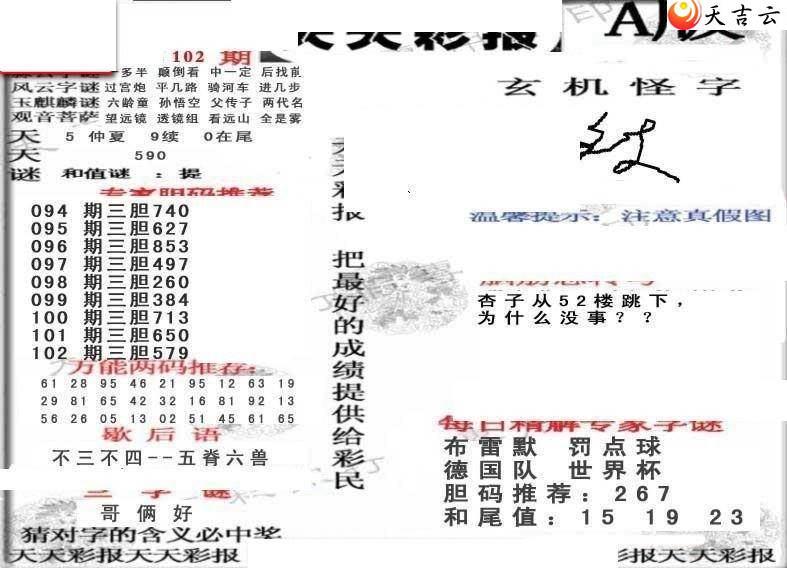 天吉云
102 期
一多半 颠倒看 中一定 后找前
风云字谜 过宫炮 平几路 骑河车 进几步
玉麒麟谜 六龄童 孙悟空 父传子 两代名
观音菩萨 望远镜 透镜组 看远山 全是雾
天 5 仲夏 9续 0在尾
天 590
谜 和值谜 : 提
专家胆码推荐
094 期三胆740
095 期三胆627
096 期三胆853
097 期三胆497
098 期三胆260
099 期三胆384
100 期三胆713
101 期三胆650
102 期三胆579
万能两码推荐:
61 28 95 46 21 95 12 63 19
29 81 65 42 32 16 81 92 13
56 26 05 13 02 51 45 61 65
歇后语
不三不四--五脊六兽
三字谜
哥俩好
猜对字的含义必中奖
天天彩报天天彩报
天天彩报
把最好的成绩提供给彩民
天天彩报
玄机怪字
温馨提示: 注意真假图
脑筋急转弯
杏子从52楼跳下,
为什么没事??
每日精解专家字谜
布雷默 罚点球
德国队 世界杯
胆码推荐:267
和尾值:15 19 23
彩报天天彩报